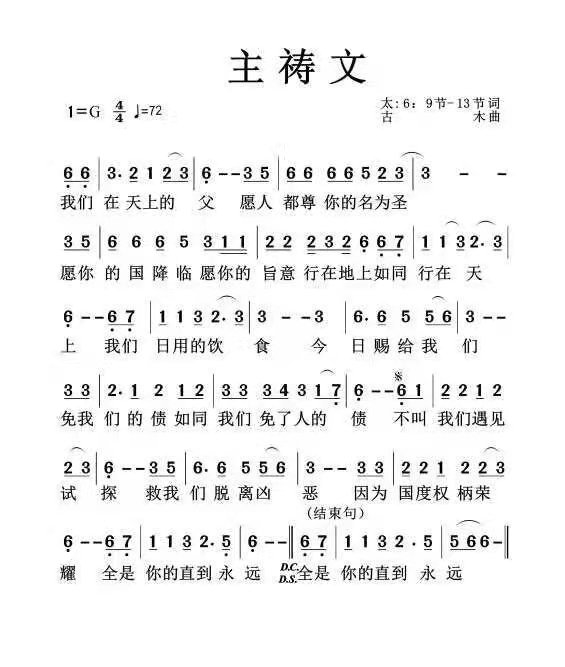 主祷文
1=G 4/4 ♩=72
太:6: 9节-13节词
古 木曲
6 6 | 3. 2 1 2 3 | 6 - - 3 5 | 6 6 6 6 6 5 2 3 | 3 - -
我们 在 天上的 父 愿人 都尊 你的名为圣
3 5 | 6 6 6 5 3 1 1 | 2 2 2 3 2 2 6 6 7 | 1 1 3 2. 3 |
愿你 的 国 降临 愿你的 旨意 行在地上如同 行在 天
6 - - 6 7 | 1 1 3 2. 3 | 3 - - 3 | 6. 6 5 5 6 | 3 - -
上 我们 日用的饮 食 今 日 赐 给 我 们
3 3 | 2. 1 2 1 2 | 3 3 3 4 3 1 7 | 6 - - 6. 1 | 2 2 1 2
免我 们 的 债 如同 我们 免了人的 债 不叫 我们遇见
2 3 | 6 - - 3 5 | 6. 6 5 5 6 | 3 - - 3 3 | 2 2 1 2 2 3
试 探 救我 们 脱 离凶 恶 因为 国度权 柄荣
(结束句)
6 - - 6 7 | 1 1 3 2. 5 | 6 - - ‖ 6 7 | 1 1 3 2. 5 | 5 6 6 - ‖
耀 全是 你的直到 永 远 D.C. D.S. 全是 你的直到 永 远